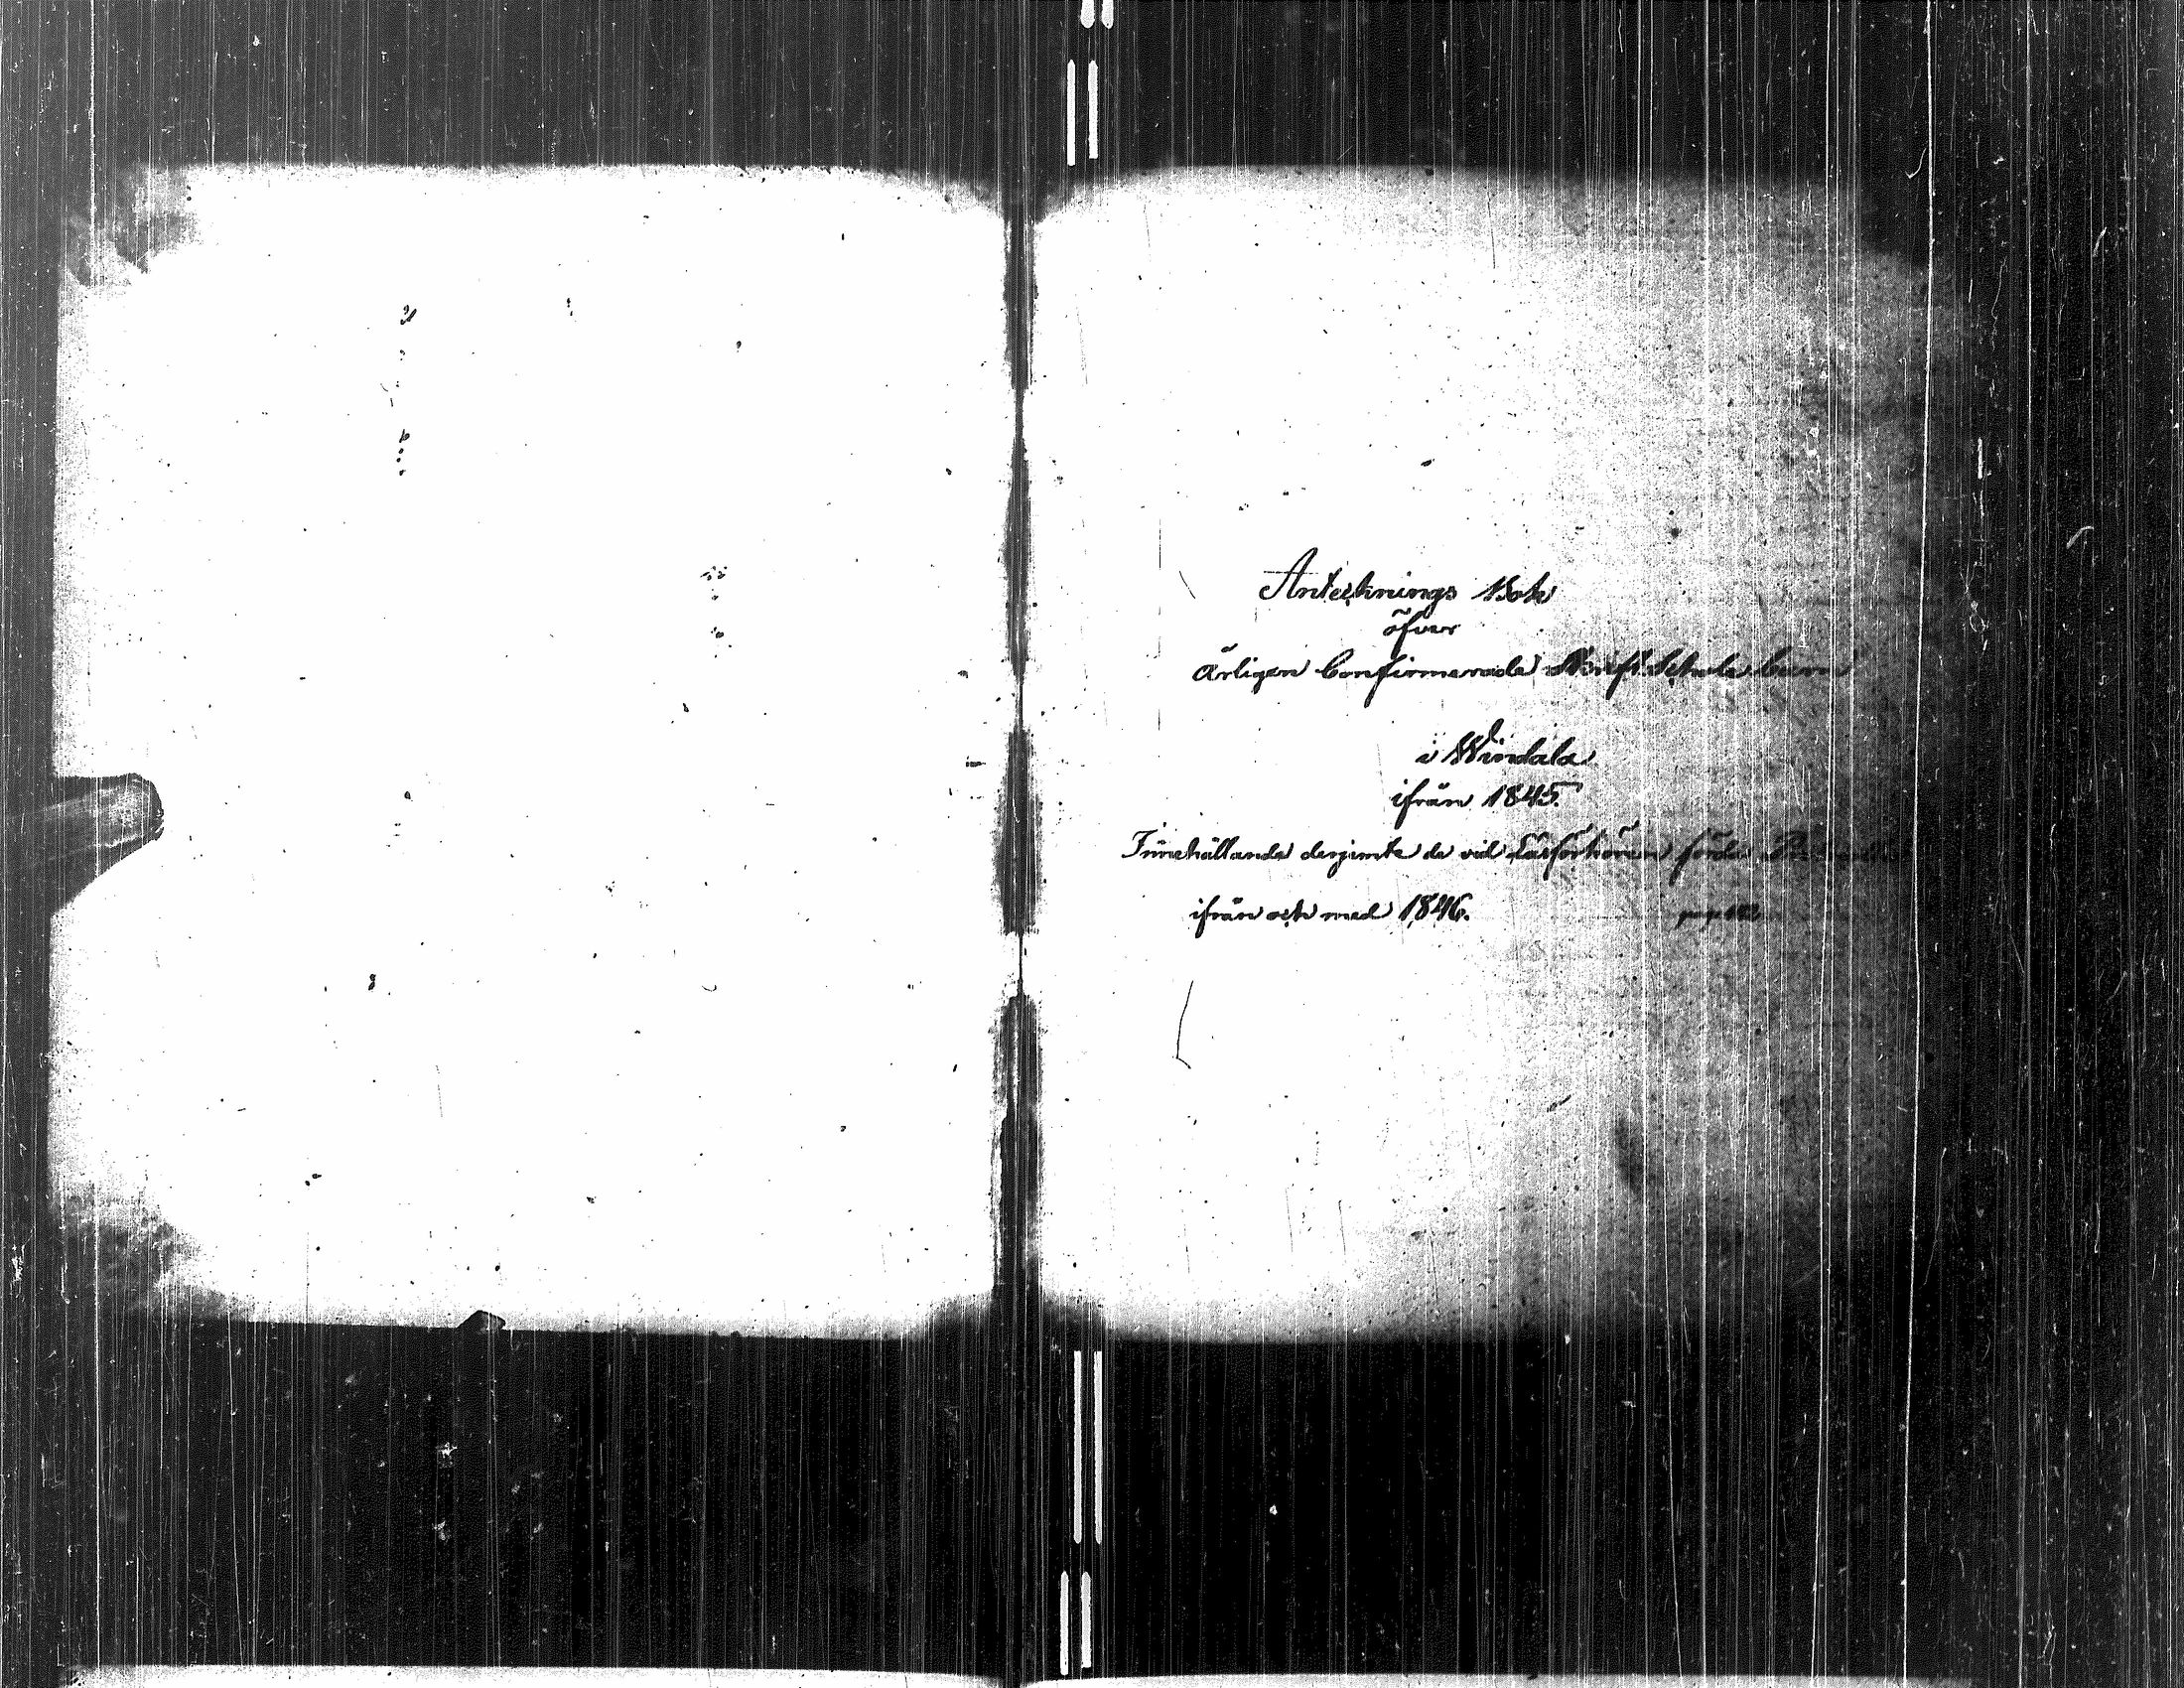 Antecknings Bok
öfver
årligen Confirmerade Skrift Schole barn
i Windala
ifrån 1845.
Innehållande derjemte de vid Läsförhören förda
ifrån och med 1846. pag.